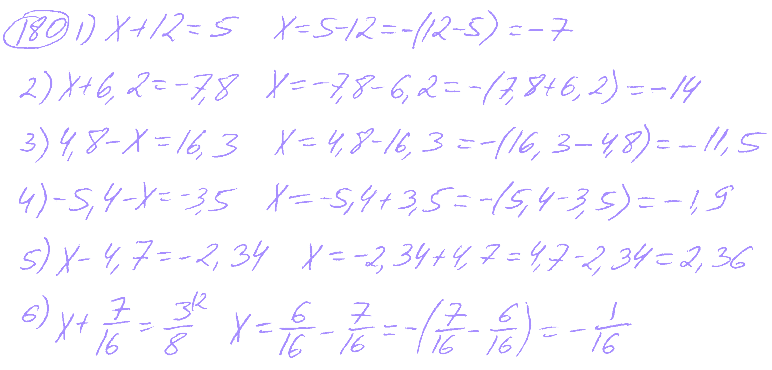 180 1) x+12=5 x=5-12=-(12-5)=-7
2) x+6,2=-7,8 x=-7,8-6,2=-(7,8+6,2)=-14
3) 4,8-x=16,3 x=4,8-16,3=-(16,3-4,8)=-11,5
4) -5,4-x=-3,5 x=-5,4+3,5=-(5,4-3,5)=-1,9
5) x-4,7=-2,34 x=-2,34+4,7=4,7-2,34=2,36
6) x+7/16=3\2/8 x=6/16-7/16=-(7/16-6/16)=-1/16